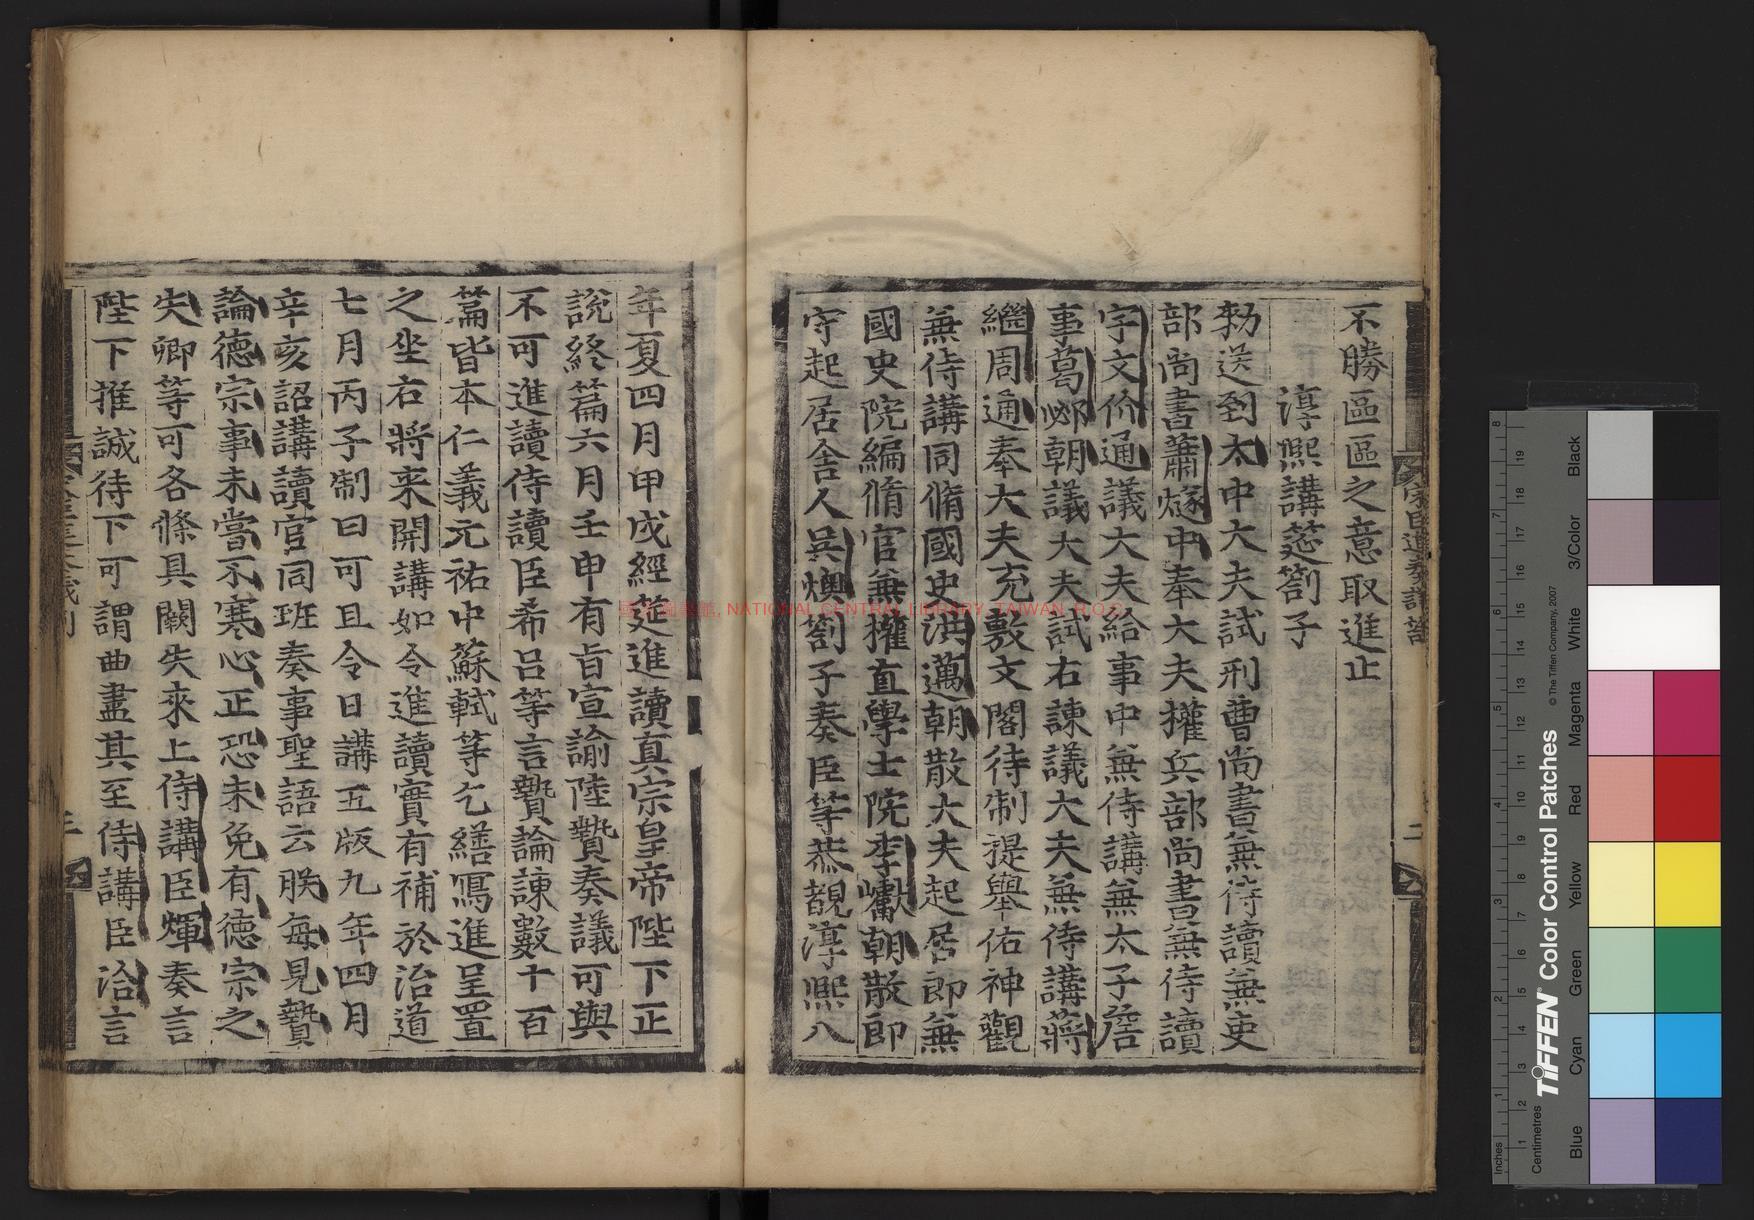 不勝區區之意取進止
淳熙講筵劄子
勑送到太中大夫試刑曹尚書兼侍讀兼吏
部尚書蕭燧中奉大夫權兵部尚書兼侍讀
宇文价通議大夫給事中兼侍講兼太子詹
事葛邲朝議大夫試右諫議大夫兼侍講蔣
繼周通奉大夫充敷文閣待制提舉佑神觀
兼侍講同脩國史洪邁朝散大夫起居郎兼
國史院編脩官兼權直學士院李巘朝散郎
守起居舍人吳燠劄子奏臣等恭覩淳熙八
年夏四月甲戌經筵進讀真宗皇帝陛下正
說終篇六月壬申有旨宣諭陸贄奏議可與
不可進讀侍讀臣希呂等言贄論諫數十百
篇皆本仁義元祐中蘇軾等乞繕寫進呈置
之坐右將来開講如令進讀實有補於治道
七月丙子制曰可且令日講五版九年四月
辛亥詔講讀官同班奏事聖語云朕每見贄
論德宗事未嘗不寒心正恐未免有德宗之
失卿等可各條具闕失來上侍講臣煇奏言
陛下推誠待下可謂曲盡其至侍講臣洽言
國家圖書館, NATIONAL CENTRAL LIBRARY, TAIWAN, R.O.C
二
三
Inches
Centimetres
TIFFEN® Color Control Patches
© The Tiffen Company, 2007
Blue
Cyan
Green
Yellow
Red
Magenta
White
3/Color
Black